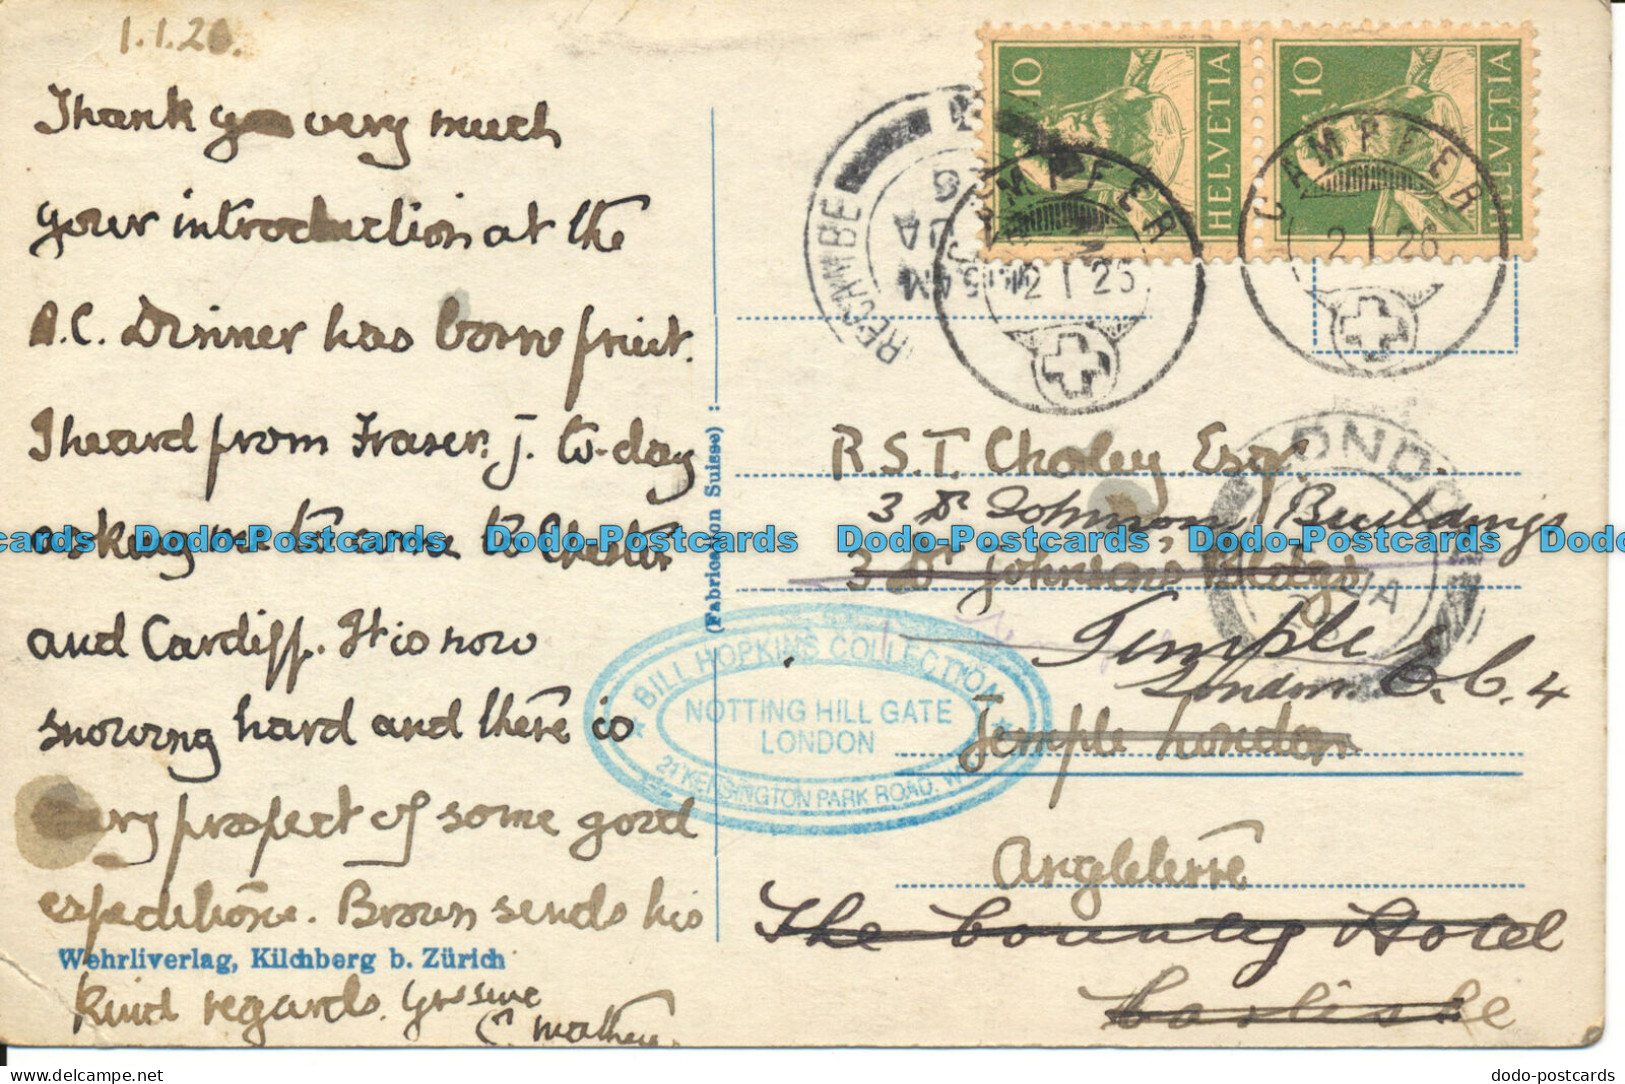 1.1.26.
Thank you very much
your introduction at the
A.C. Dinner has borne fruit.
I heard from Fraser. J. to-day
asking me to come to Chester
and Cardiff. It is now
snowing hard and there is
every prospect of some good
expeditions. Brown sends his
kind regards. Yrs sinc
C. Matthew.
Wehrliverlag, Kilchberg b. Zürich
(Fabrication Suisse)
10
HELVETIA
10
HELVETIA
CAMPFER
2 I 26
CAMPFER
2 I 26
LONDON
R.S.T. Chorley Esqr.
3 Dr Johnsons Buildings
3 Dr Johnsons Bldgs
Temple
London. E.C.4
Temple London
Angleterre
The County Hotel
Carlisle
BILL HOPKINS COLLECTION
NOTTING HILL GATE
LONDON
21 KENSINGTON PARK ROAD. W11
Dodo-Postcards Dodo-Postcards Dodo-Postcards Dodo-Postcards Dodo-Postcards
dodo-postcards
DELCAMPE.NET